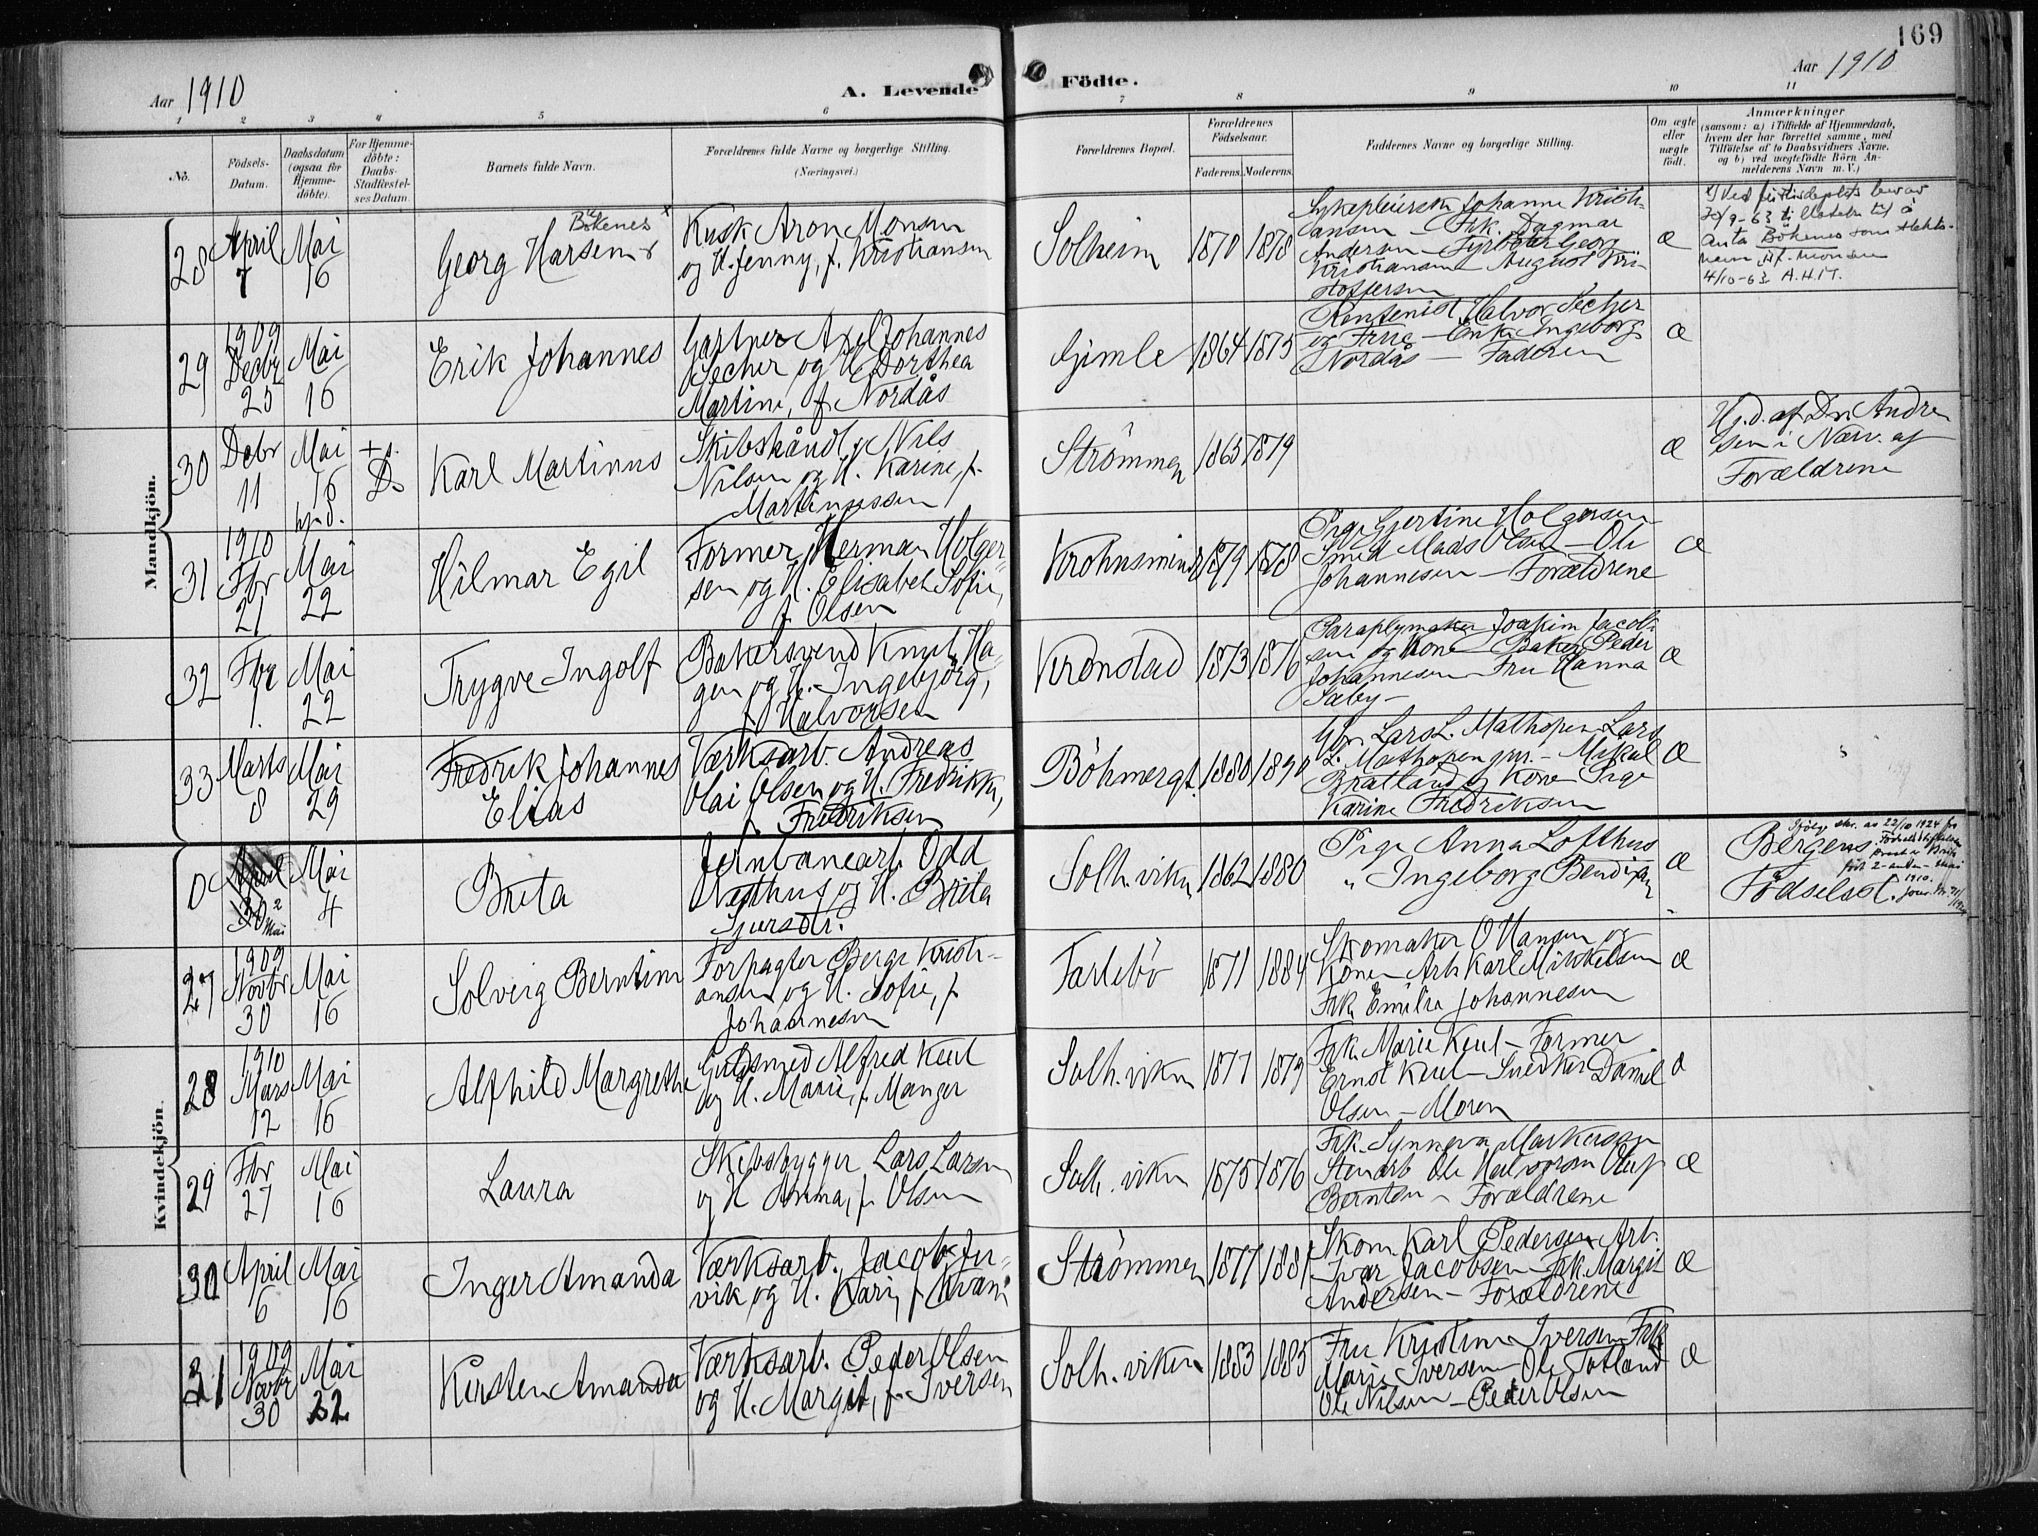 169
Aar 1910
A. Levende Födte.
Aar 1910
1 2 3 4 5 6 7 8 9 10 11
No.
Födsels-
Datum.
Daabsdatum
(ogsaa for
Hjemme-
döbte).
For Hjemme-
döbte:
Daabs-
Stadfæstel-
ses Datum.
Barnets fulde Navn.
Forældrenes fulde Navne og borgerlige Stilling.
(Næringsvei.)
Forældrenes Bopæl.
Forældrenes
Födselsaar.
Faderens. Moderens.
Faddernes Navne og borgerlige Stilling.
Om ægte
eller
uægte
födt.
Anmærkninger
(saasom: a) i Tilfælde af Hjemmedaab,
hvem der har forrettet samme, med
Tilföielse af to Daabsvidners Navne,
og b) ved uægtefödte Börn An-
melderens Navn m. V.)
Mandkjön.
28
April
7
Mai
16
Bökenes x
Georg Harsem
Kusk Aron Monsen
og H. Jenny, f. Kristiansen
Solheim
1870 1878
Sykepleierske Johanne Kristi-
ansen — Frk. Dagmar
Andersen — Fyrböter Georg
Kristiansen — August Kri-
stoffersen
æ
anta Bökenes som slekts-
navn Af. Monsen
4/10-63 A.H.M.
29
1909
Decbr
25
Mai
16
Erik Johannes
Gartner Axel Johannes
Secher og H. Dorthea
Martine, f. Nordås
Gimle
1864 1875
Halvor Secher
og Frue — Enke Ingeborg
Nordås — Faderen
æ
30
Debr
11
Mai
16
hj. d.
+ s.
D.
Karl Martinus
Skibshåndv. Nils
Nilsen og H. Karine, f.
Martinussen
Strömmen
1865 1879
æ
Hj.d. af Dr. Andre
sen i Nærv. af
Forældrene
31
1910
Fbr
21
Mai
22
Hilmar Egil
Former Herman Holger-
sen og H. Elisabet Sofie,
f. Olsen
Krohnsminde
1879 1878
Pige Gjertine Holgersen
Smed Mads Olsen — Ole
Johannesen — Forældrene
æ
32
Fbr
1.
Mai
22
Trygve Ingolf
Bakersvend Knut Ha-
gen og H. Ingebjörg,
f. Halvorsen
Kronstad
1873 1876
Paraplymaker Joakim Jacob-
sen og Kone — Baker Peder
Johannesen — Fru Hanna
Sæby —
æ
33
Marts
8
Mai
29
Fredrik Johannes
Elias
Værksarb. Andreas
Olai Olsen og H. Fredrikke,
f. Fredriksen
Böhmergt.
1880 1890
Lars L. Mathopen Lars
L. Mathopen jun. — Mikal
Bratland og Kone Pige
Karine Fredriksen
æ
Kvindekjön.
0
April
30
2
Mai
Mai
4
Brita
Jernbanearb. Odd
Nesthus og H. Brita
Sjursdtr.
Solh.viken
1862 1880
Pige Anna Lofthus
" Ingeborg Bendixen
æ
Bergens
Födselsst.
22/10 1924
27
1909
Novbr
30
Mai
16
Solveig Berntine
Forpagter Berge Kristi-
ansen og H. Sofie, f.
Johannesen
Farlebö
1871 1884
Skomaker O Hansen og
Kone — Arb Karl Mikkelsen
Frk. Emilie Johannesen
æ
28
1910
Mars
12
Mai
16
Alfhild Margrethe
Guldsmed Alfred Keul
og H. Marie, f. Manger
Solh.viken
1877 1879
Frk. Marie Keul — Former
Ernst Keul — Snedker Daniel
Olsen — Moren
æ
29
Fbr
27
Mai
16
Laura
Skibsbygger Lars Larsen
og H Anna, f. Olsen
Solh.viken
1875 1876
Frk. Synneva Markusson
Stenarb Ole Halvorsen Oluf
Berntsen — Forældrene
æ
30
April
6
Mai
16
Inger Amanda
Værksarb. Jacob Jer-
vik og H. Kari, f. Kvam
Strömmen
1877 1881
Skom. Karl Pedersen Arb.
Ivar Jacobsen — Frk. Margit
Andersen — Forældrene
æ
31
1909
Novbr
30
Mai
22
Kirsten Amanda
Værksarb. Peder Olsen
og H. Margit, f. Iversen
Solh.viken
1883 1885
Fru Kristine Iversen Frk
Marie Iversen — Ole Totland
Ole Nilsen — Peder Olsen
æ